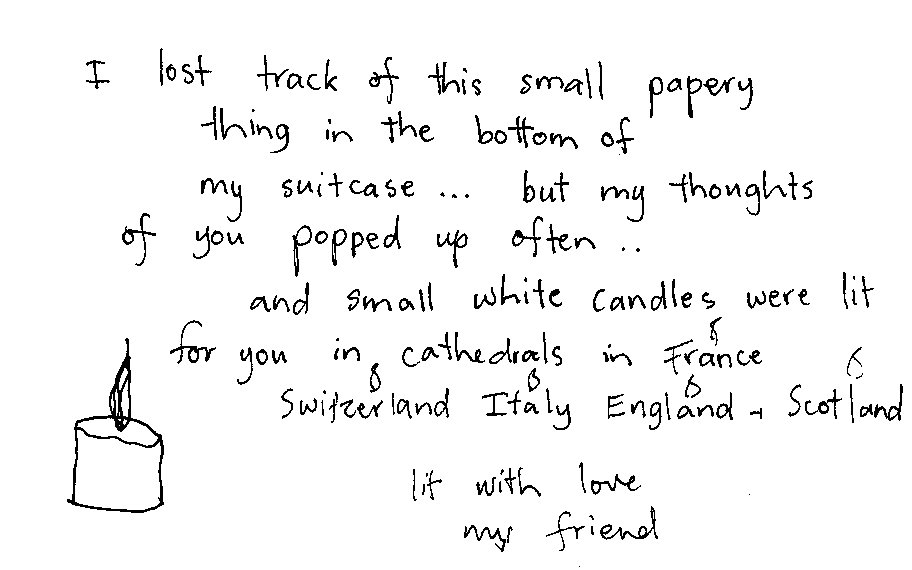 I lost track of this small papery
thing in the bottom of
my suitcase ... but my thoughts
of you popped up often ..
and small white candles were lit
for you in cathedrals in France
Switzerland Italy England + Scotland
lit with love
my friend